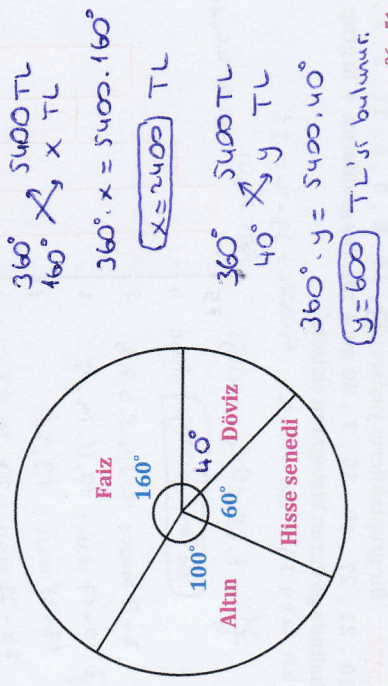 Faiz
160°
40°
Döviz
100°
60°
Altın
Hisse senedi
360° 5400 TL
160° x TL
360°. x = 5400.160°
x=2400 TL
360° 5400 TL
40° y TL
360°. y = 5400.40°
y=600 TL'si bulunur.